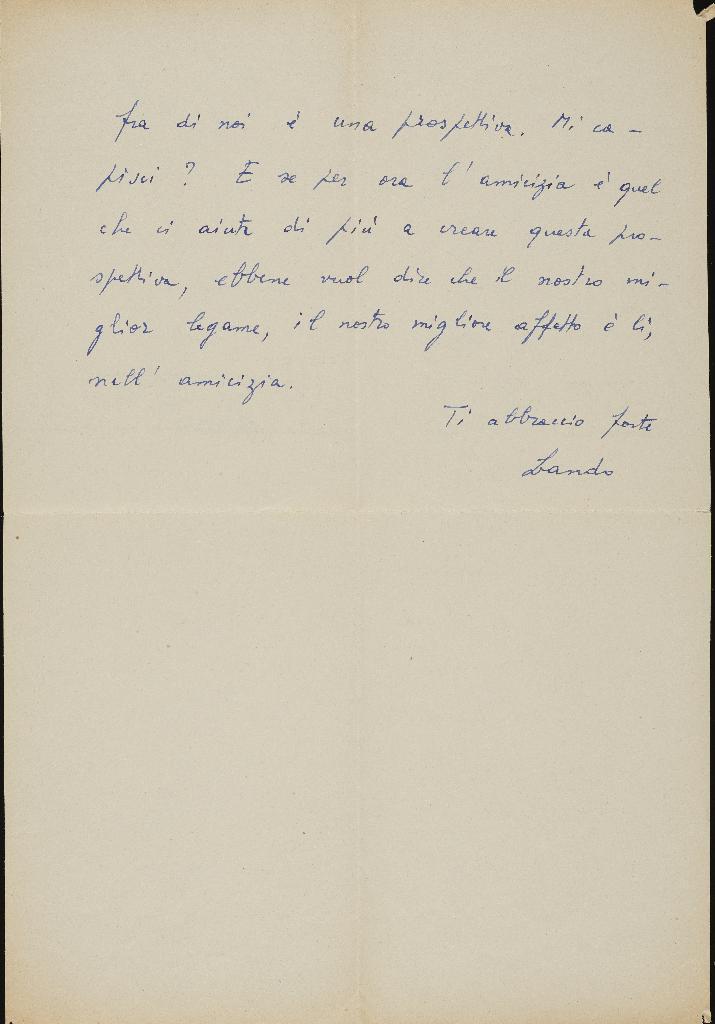 fra di noi è una prospettiva. Mi ca-
pisci? E se per ora l'amicizia è quel
che ci aiuta di più a creare questa pro-
spettiva, ebbene vuol dire che il nostro mi-
glior legame, il nostro migliore affetto è lì,
nell'amicizia.
Ti abbraccio forte
Lando